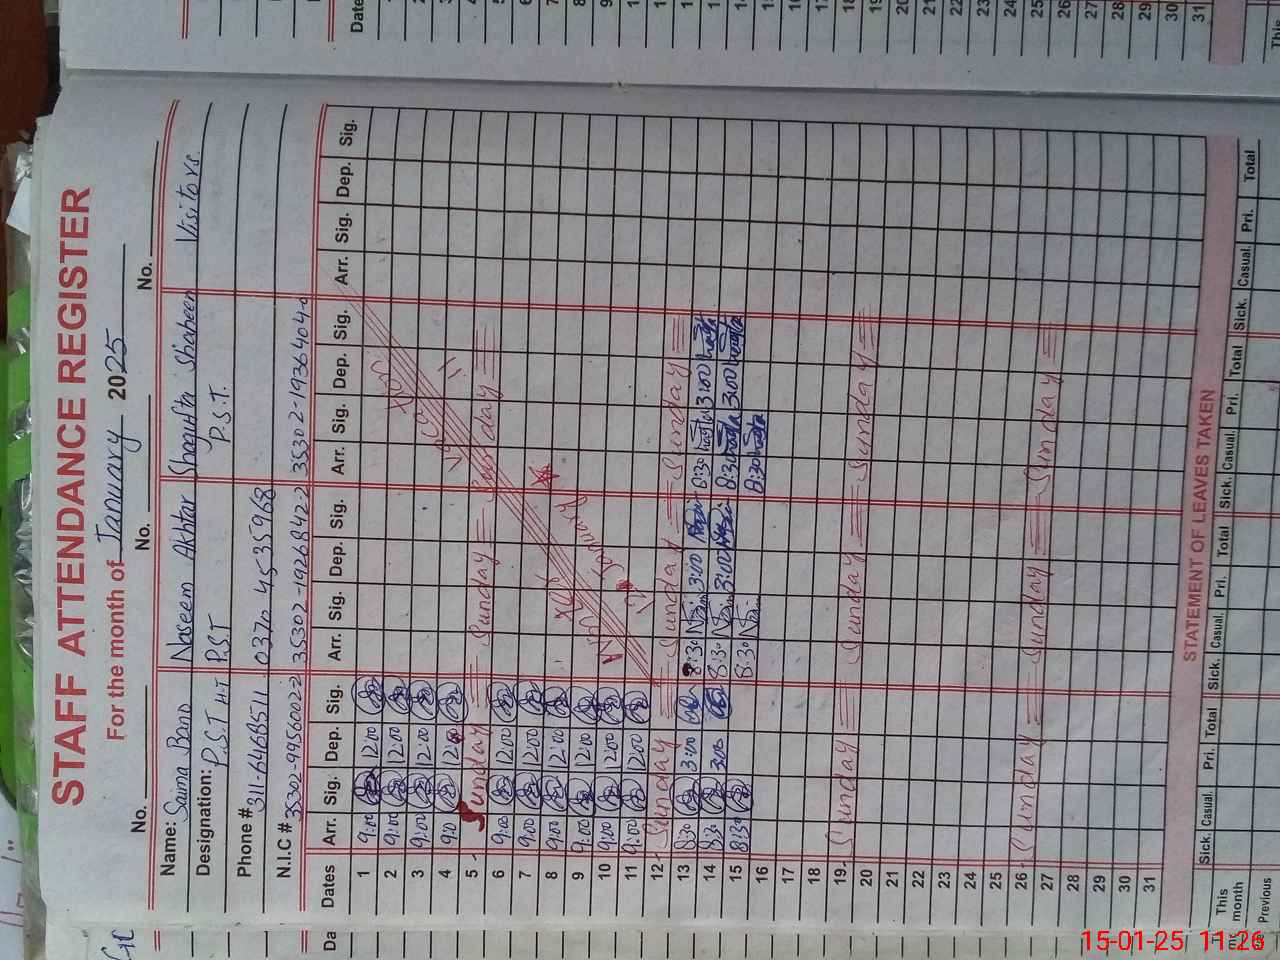 STAFF ATTENDANCE REGISTER
For the month of January 2025
No. No. No.
Name: Saima Bano Naseem Akhtar Shagufta Shaheen Visitors.
Designation: P.S.T H.T P.S.T P.S.T.
Phone # 311-6468511 0370 4535968
N.I.C # 35302-9956002-2 35302-1926842-2 35302-1936404-0
Dates Arr. Sig. Dep. Sig. Arr. Sig. Dep. Sig. Arr. Sig. Dep. Sig. Arr. Sig. Dep. Sig.
1 9:00 12:00
2 9:00 12:00
3 9:00 12:00
4 9:0 12:0
5 Sunday Sunday Sunday
6 9:00 12:00
7 9:00 12:00
8 9:00 12:00
9 9:00 12:00
10 9:00 12:00
11 9:00 12:00
12 Sunday Sunday Sunday
13 8:30 3:00 8:30 3:00 8:30 3:00
14 8:30 3:00 8:30 3:00 8:30 3:00
15 8:30 8:30 8:30
16
17
18
19 Sunday Sunday Sunday
20
21
22
23
24
25
26 Sunday Sunday Sunday
27
28
29
30
31
STATEMENT OF LEAVES TAKEN
Sick. Casual. Pri. Total Sick. Casual. Pri. Total Sick. Casual. Pri. Total Sick. Casual. Pri. Total
This month
Previous
Date
15-01-25 11:26